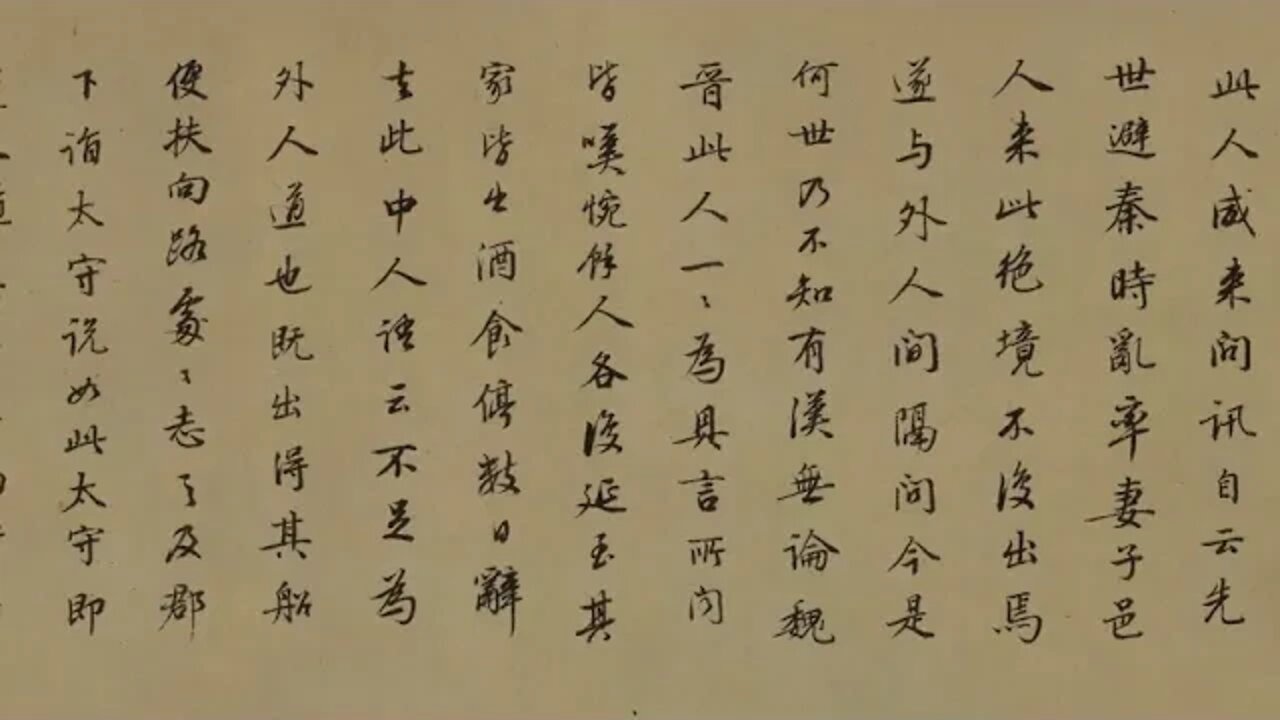 此人咸来问讯自云先
世避秦時亂率妻子邑
人来此绝境不復出焉
遂与外人间隔问今是
何世乃不知有漢無論魏
晉此人一〻為具言所问
皆嘆惋餘人各復延至其
家皆出酒食停数日辭
去此中人语云不足為
外人道也既出得其船
便扶向路處〻志之及郡
下诣太守说如此太守即